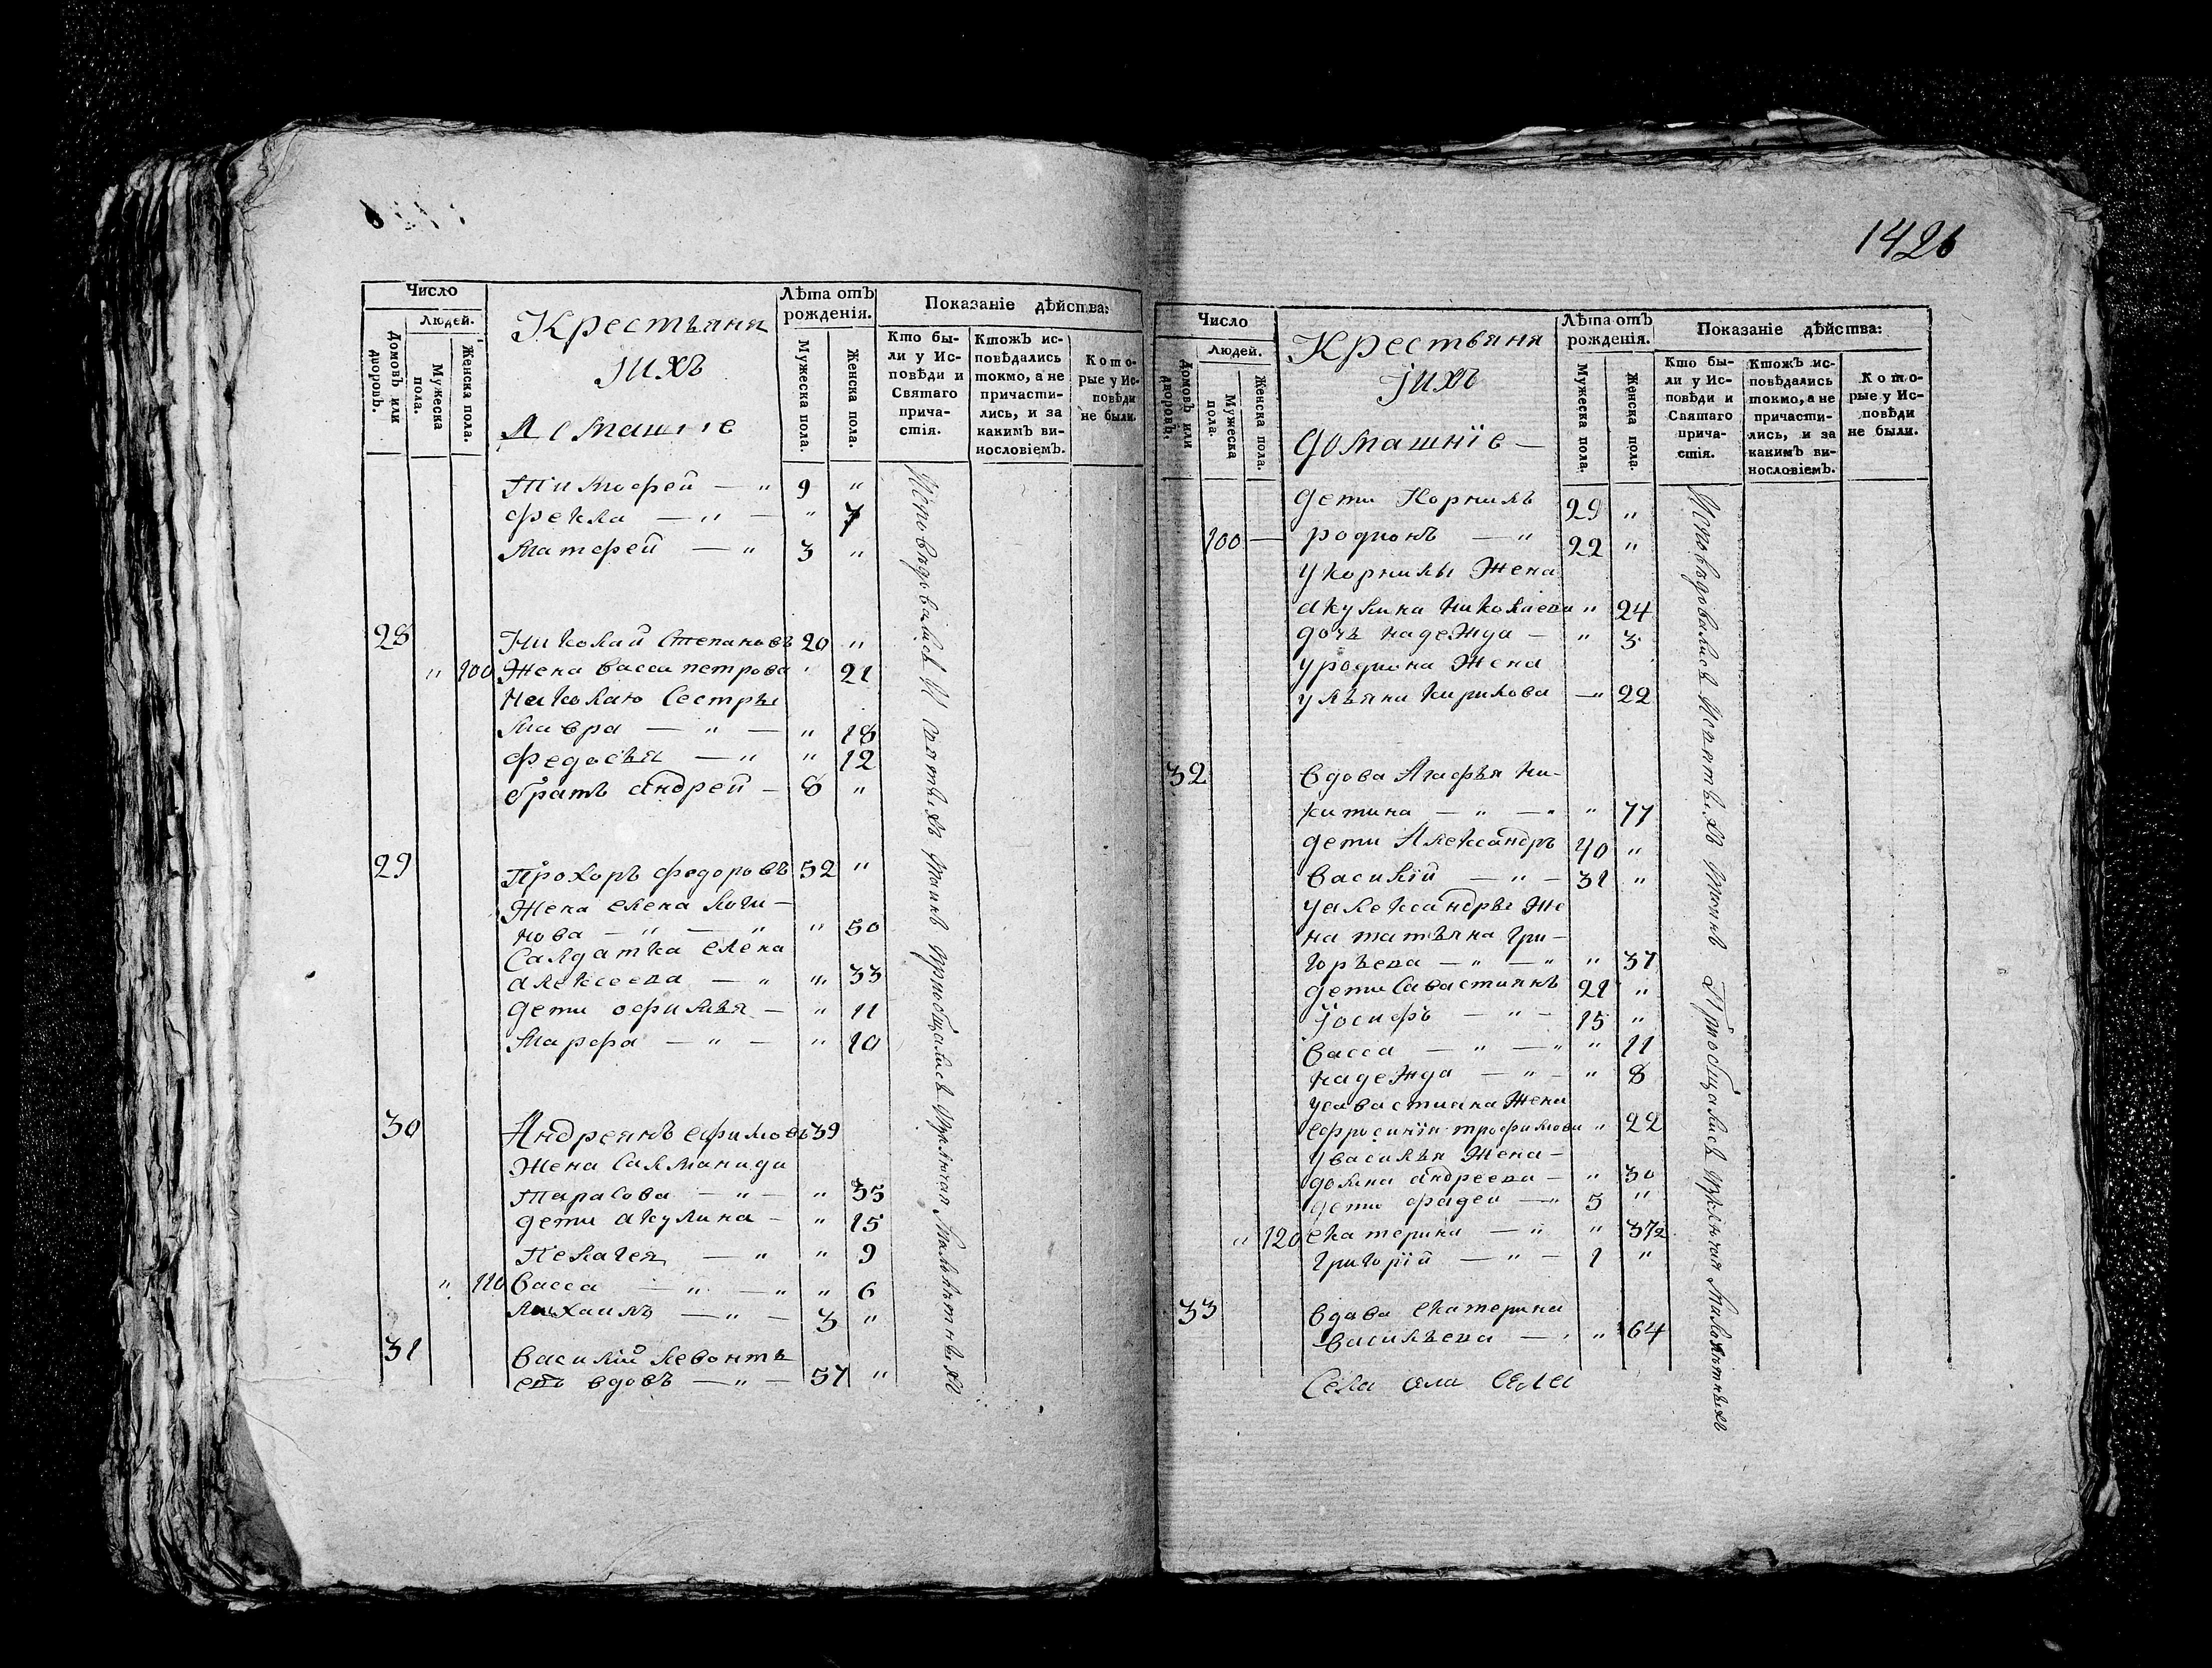 Число
Людей.
Домовъ или дворовъ.
Мужеска пола.
Женска пола.
Крестьяня
ихъ
Домашніе
Лѣта отъ рожденія.
Мужеска пола.
Женска пола.
Показаніе дѣйства:
Кто были у Исповѣди и Святаго причастія.
Ктожъ исповѣдались токмо, а не причастились, и за какимъ винословіемъ.
Которые у Исповѣди не были.
Тимофей — " 9 "
Фекла — " — " 7
Матфей — " 3 "
28 Николай Степановъ 20 "
" 100 Жена васса петрова " 21
Николаю Сестры
Мавра — " — " 18
Федосья — " " 12
братъ андрей — 8 "
29 Прохоръ федоровъ 52 "
Жена елена логи-
нова — " — " " 50
Салдатка Елена
алексеева — " " 33
дети офимья — " 11
Марфа — " — " 10
30 Андреянъ ефимовъ 39
Жена Саламанида
Тарасова — " — " 35
дети акулина — " 15
Пелагея — " " 9
" 110 васса — " — " " 6
Михаилъ — " — 3 "
31 василий левонть
евъ вдовъ — " — 57 "
Исповѣдовались И святыхъ таинъ приобщались включая малолѣтныхъ
1426
Число
Людей.
Домовъ или дворовъ.
Мужеска пола.
Женска пола.
Крестьяня
ихъ
Домашніе —
Лѣта отъ рожденія.
Мужеска пола.
Женска пола.
Показаніе дѣйства:
Кто были у Исповѣди и Святаго причастія.
Ктожъ исповѣдались токмо, а не причастились, и за какимъ винословіемъ.
Которые у Исповѣди не были.
дети Корнилъ 29 "
100 — родионъ — " 22 "
у корнилы Жена
акулина николаева " 24
дочь надежда — " 3
у родиона Жена
ульяна кирилова — " 22
32 вдова Агафья ни-
китина — " — " " 77
дети Александръ 40 "
василий — " — 31 "
у александры Же
на татьяна гри-
горьева — " — " " 37
дети Савастиянъ 21 "
Iосифъ — " — 15 "
васса — " — " " 11
надежда — " — " 8
у савастияна Жена
ефросинія трофимова " 22
у василья Жена —
домна андреева — " 30
дети фадей — " 5 "
" 120 екатерина — " " 3 1/2
григорій — " — 1 "
33 вдава екатерина
васильева — " " 64
Села
Исповѣдовались Исвятыхъ таинъ Приобщались включая малолѣтныхъ